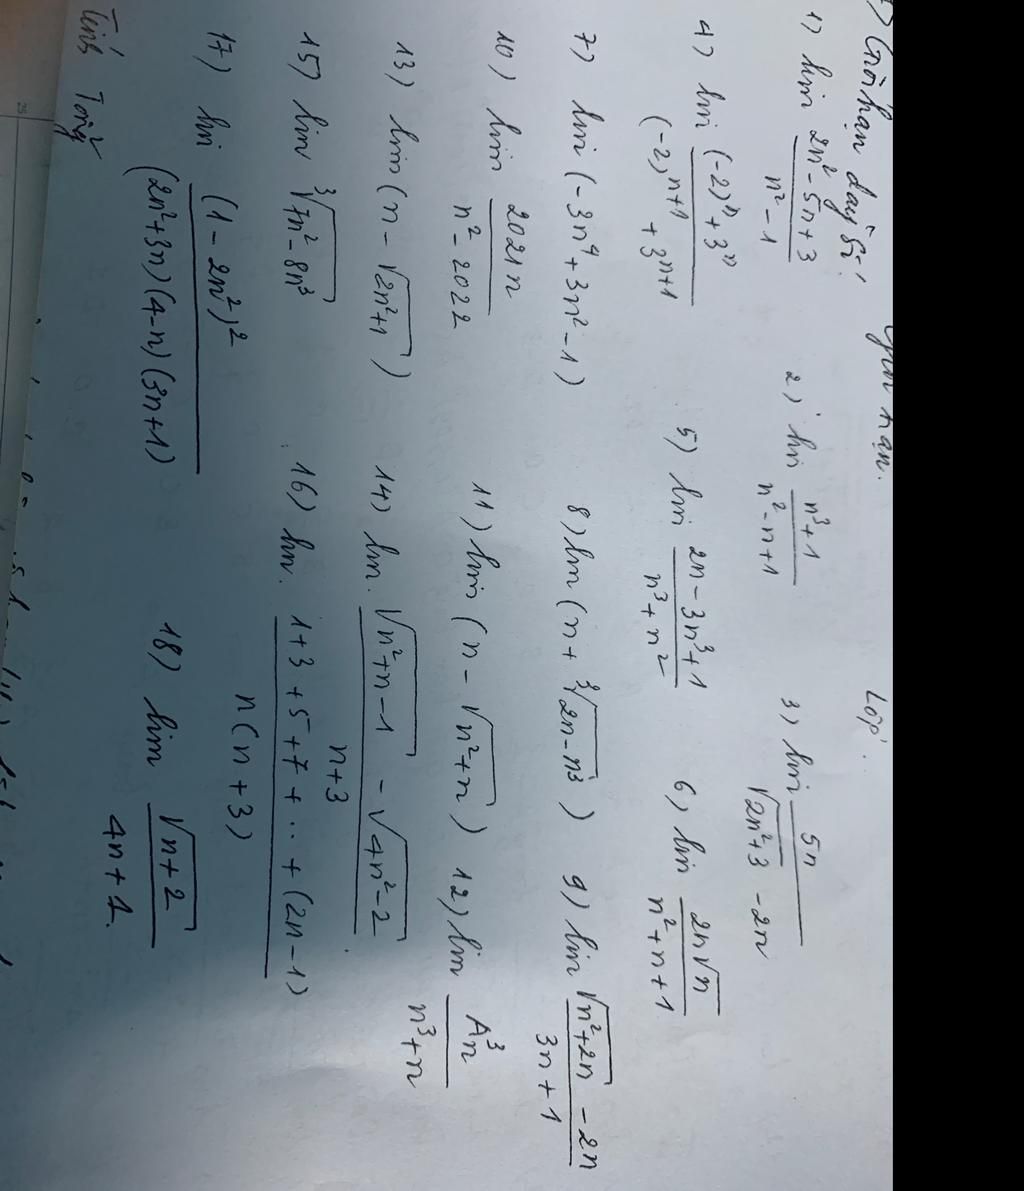 Giới hạn.
Lớp.
Giới hạn dãy số!
1) lim (2n² - 5n + 3)/(n² - 1)
2) lim (n³ + 1)/(n² - n + 1)
3) lim 5n/(√(2n² + 3) - 2n)
4) lim ((-2)ⁿ + 3ⁿ)/((-2)ⁿ⁺¹ + 3ⁿ⁺¹)
5) lim (2n - 3n³ + 1)/(n³ + n²)
6) lim 2n√n/(n² + n + 1)
7) lim (-3n⁴ + 3n² - 1)
8) lim (n + ∛(2n - n³))
9) lim (√(n² + 2n) - 2n)/(3n + 1)
10) lim 2021n/(n² - 2022)
11) lim (n - √(n² + n))
12) lim A³n/(n³ + n)
13) lim (n - √(2n² + 1))
14) lim. (√(n² + n - 1) - √(4n² - 2))/(n + 3)
15) lim ∛(7n² - 8n³)
16) lim. (1 + 3 + 5 + 7 + .. + (2n - 1))/(n(n + 3))
17) lim (1 - 2n²)²/((2n² + 3n)(4 - n)(3n + 1))
18) lim √(n + 2)/(4n + 1).
Tính Tổng
25